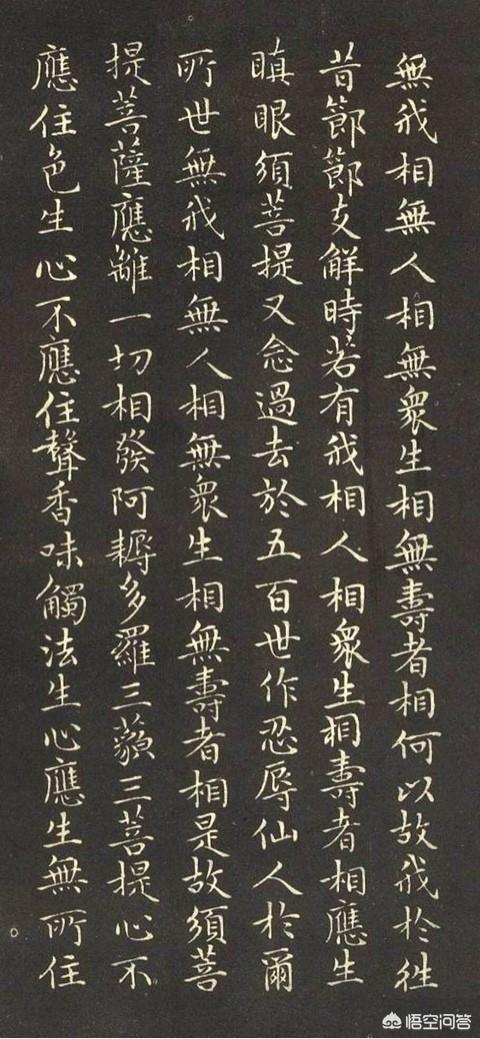 無我相無人相無衆生相無壽者相何以故我於往
昔節節支解時若有我相人相衆生相壽者相應生
瞋眼須菩提又念過去於五百世作忍辱仙人於爾
所世無我相無人相無衆生相無壽者相是故須菩
提菩薩應離一切相發阿耨多羅三藐三菩提心不
應住色生心不應住聲香味觸法生心應生無所住
悟空问答